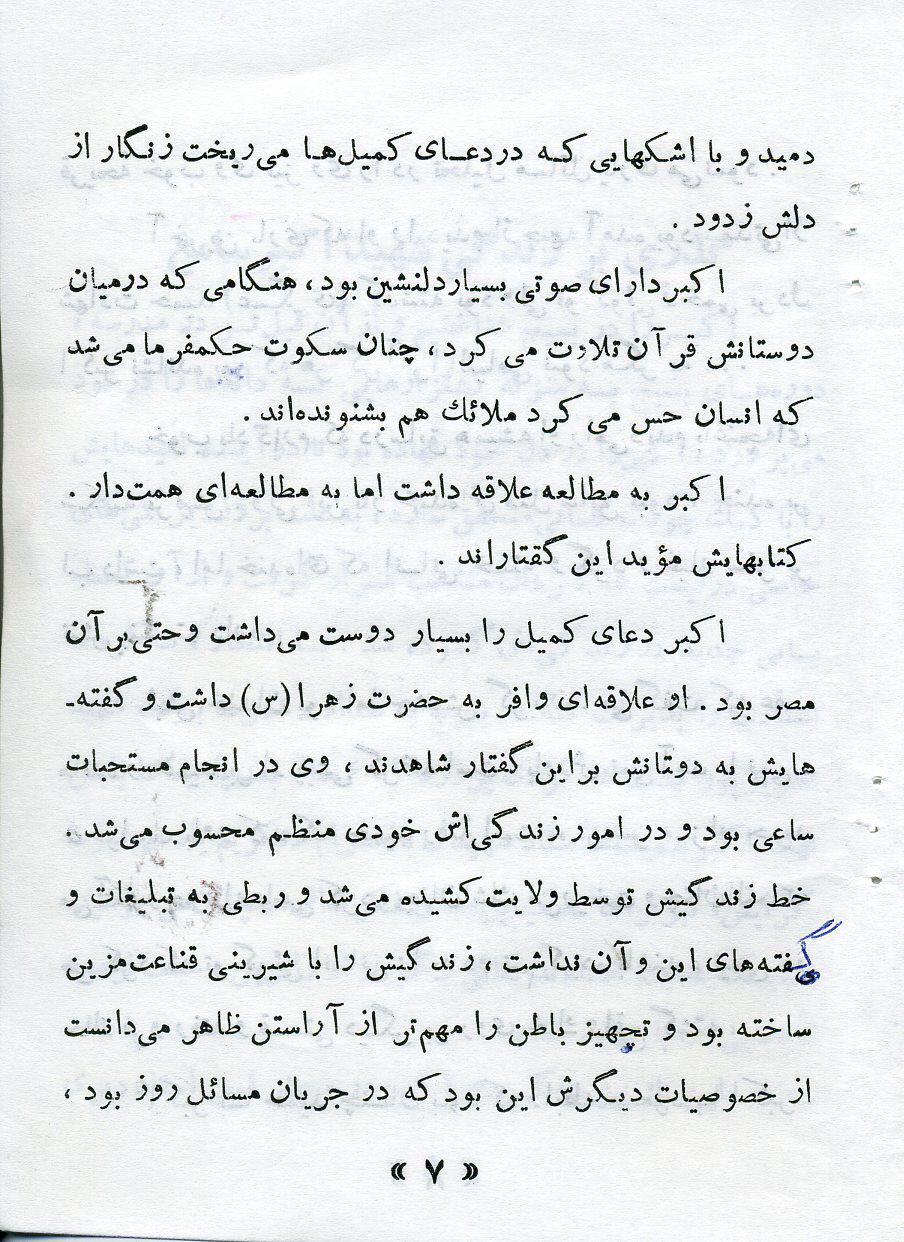 دمید و با اشکهایی که دردعای کمیل‌ها می‌ریخت زنگار از
دلش زدود .
اکبردارای صوتی بسیاردلنشین بود ، هنگامی که درمیان
دوستانش قرآن تلاوت می کرد ، چنان سکوت حکمفرما می‌شد
که انسان حس می کرد ملائك هم بشنونده‌اند .
اکبر به مطالعه علاقه داشت اما به مطالعه‌ای همت‌دار .
کتابهایش مؤید این گفتاراند .
اکبر دعای کمیل را بسیار دوست می‌داشت وحتی برآن
مصر بود . او علاقه‌ای وافر به حضرت زهرا (س) داشت و گفته‌ـ
هایش به دوتانش براین گفتار شاهدند ، وی در انجام مستحبات
ساعی بود و در امور زندگی‌اش خودی منظم محسوب می‌شد .
خط زندگیش توسط ولایت کشیده می‌شد و ربطی به تبلیغات و
گفته‌های این وآن نداشت ، زندگیش را با شیرینی قناعت‌مزین
ساخته بود و تجهیز باطن را مهم‌تر از آراستن ظاهر می‌دانست
از خصوصیات دیگرش این بود که در جریان مسائل روز بود ،
« ۷ »